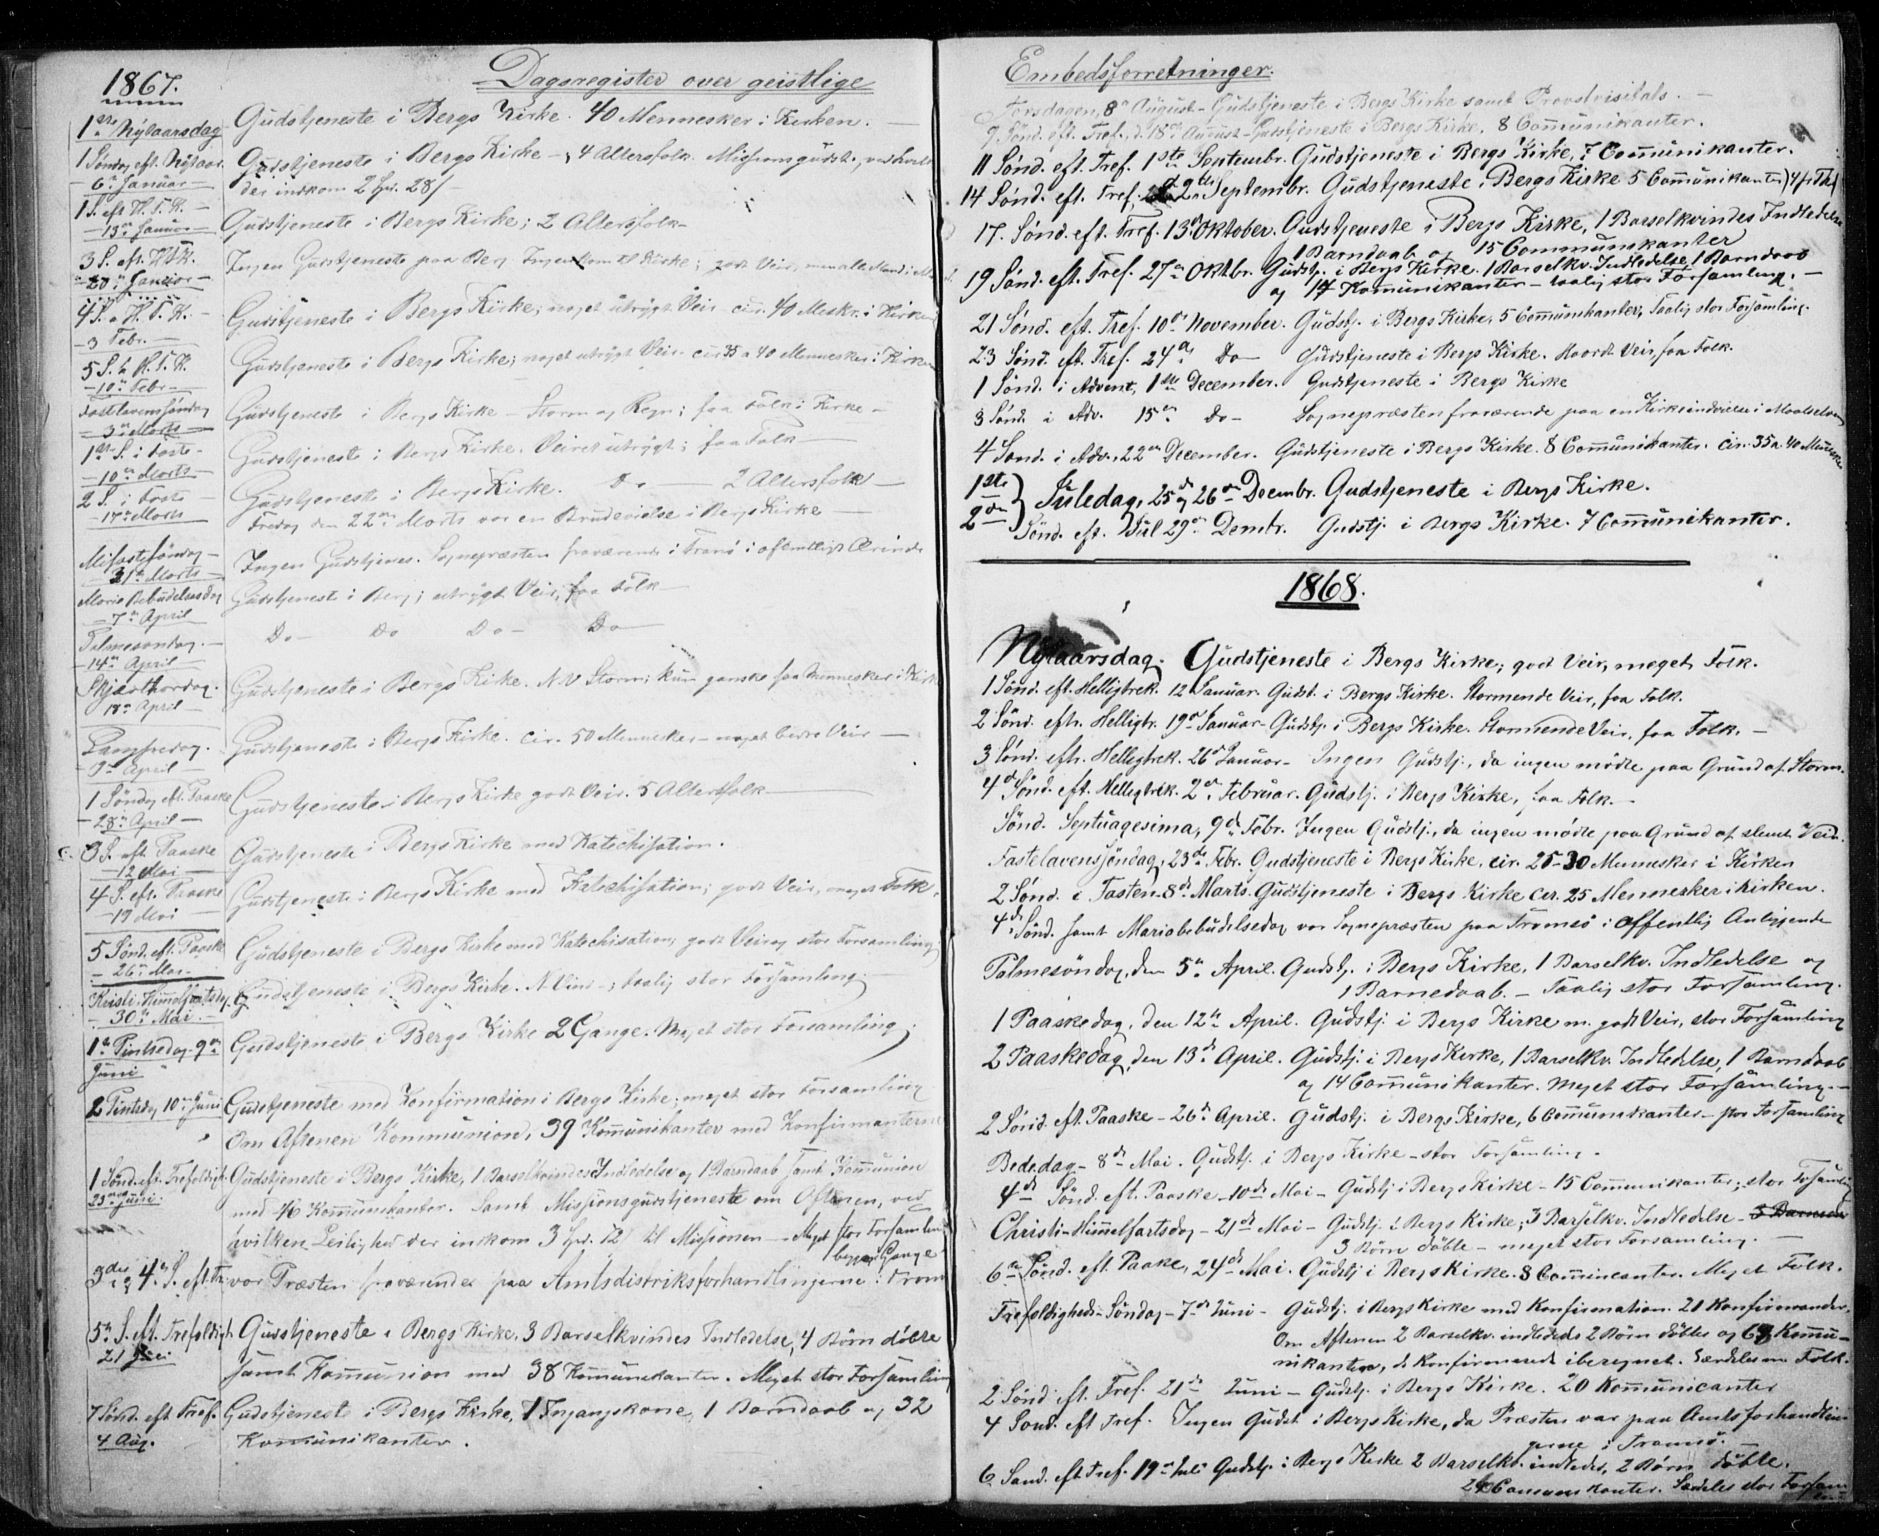 1867.
Dagsregister over geistlige
1ste Nylaarsdag Gudstjeneste i Bergs Kirke. 40 Mennesker i Kirken.
1 Søndag eft. Nylaar. Gudstjeneste i Bergs Kirke - 4 Altersfolk. Missionsgudstj.
6te Januar der indkom 2 Spd. 28/
1 S. eft. H.T.K. Gudstjeneste i Bergs Kirke; 2 Altersfolk
13de Januar
3 S. eft. H.T.K. Ingen Gudstjeneste paa Berg. Ingen kom til Kirke; godt Veir,
4 S. e. H.T.K. Gudstjeneste i Bergs Kirke; noget utrygt Veir cir. 40 Meskr. i Kirken
3 Febr.
5 S. e. H.T.K. Gudstjeneste i Bergs Kirke; noget utrygt Veir cir. 35 a 40 Mennesker i Kirken
10de Febr.
Fastelavenssöndag Gudstjeneste i Bergs Kirke - Storm og Regn; faa Folk i Kirke -
3de Marts
1ste S. i Faste Gudstjeneste i Bergs Kirke. Veiret utrygt; faa Folk
10de Marts
2 S. i Faste Gudstjeneste i Bergs Kirke. Do 2 Altersfolk
17de Marts Fredag den 22de Marts var en Brudevielse i Bergs Kirke
Mifastsöndag Ingen Gudstjenes. Sognepræsten fraværende i Tranö i offentligt Ærinde
31te Marts
Mariæ Bebudelsesdag Gudstjenest i Berg; utrygt Veir, faa Folk
7de April
Palmesøndag Do Do Do Do
14de April
Skjærthorsdag. Gudstjeneste i Bergs Kirke. N.V Storm; kun ganske faa Mennesker i Kirk
18de April
Langfredag. Gudstjeneste i Bergs Kirke. Cir. 50 Mennesker - noget bedre Veir
April
1 Søndag eft. Paaske Gudstjeneste i Bergs Kirke godt Veir. 5 Altersfolk
28de April
3 S. eft. Paaske Gudstjeneste i Bergs Kirke med Katechisation.
12 Mai
4 S. eft. Paaske Gudstjeneste i Bergs Kirke med Katechisation; godt Veir, meget Folk.
19 Mai
5 Sønd. eft. Paaske Gudstjeneste i Bergs Kirke med Katechisation; godt Veir og stor Forsamling
26de Mai
Kristi Himmelfartsdag Gudstjeneste i Bergs Kirke. N. Vind; taalig stor Forsamling
30te Mai
1ste Pintsedag 9de Juni Gudstjeneste i Bergs Kirke 2 Gange. Meget stor Forsamling
2 Pintsdag 10de Juni Gudstjeneste med Konfirmation i Bergs Kirke; meget stor Forsamling
Om Aftenen Kommunion, 39 Kommunikanter med Konfirmanterne
1 Sønd. eft. Trefoldigh. Gudstjeneste i Bergs Kirke, 1 Barselkvindes Indledelse og 1 Barndaab samt Kommunion
23de Juni. med 46 Kommunikanter. Samt Missionsgudstjeneste om Aftenen, ved
hvilken Leilighed der indkom 3 Spd. 12/ til Missionen - Meget stor Forsamling
begge Gange
3die og 4. S. eft. Tr. var Præsten fraværende paa Amtsdistriktsforhandlingerne i Trom
5te S. eft. Trefoldigh. Gudstjeneste i Bergs Kirke, 3 Barselkvindes Indledelse, 4 Børn döbte
21 Juli samt Kommunion med 38 Kommunikanter. Meget stor Forsamling
7 Sønd. eft. Tref. Gudstjeneste i Bergs Kirke, 1 Ingangskone, 1 Barndaab og 32
4 Aug. Kommunikanter.
Embedsforretninger.
Torsdagen 8de August - Gudstjeneste i Bergs Kirke samt Provstvisitats. -
9. Sønd. eft. Tref. d. 18de August - Gudstjeneste i Bergs Kirke, 8 Communikanter.
11 Sønd. eft. Tref. 1ste Septembr. Gudstjeneste i Bergs Kirke, 7 Communikanter.
14 Sønd. eft. Tref. Septembr. Gudstjeneste i Bergs Kirke 5 Communikanter
17. Sønd. eft. Tref. 13de Oktober. Gudstjeneste i Bergs Kirke, 1 Barselkvindes Indledelse
1 Barndaab og 15 Communikanter
19 Sønd. eft. Tref. 27de Oktbr. Gudstj. i Bergs Kirke. 1 Barselkv. Indledelse, 1 Barndaab
og 14 Kommunikanter - taalig stor Forsamling. -
21 Sønd. eft. Tref. 10de November. Gudstj. i Bergs Kirke, 5 Communikanter, Taalig stor Forsamling.
23 Sønd. eft. Tref. 24de Do Gudstjeneste i Bergs Kirke. Haardt Veir, faa Folk.
1 Sønd. i Advent, 1ste December. Gudstjeneste i Bergs Kirke
3 Sønd. i Adv. 15de Do Sognepræsten fraværende paa en Kirkeindvielse i Maalselven
4 Sønd. i Adv. 22de December. Gudstjeneste i Bergs Kirke. 8 Communikanter. cir. 35 a 40 Mennesker
1ste
2den } Juledag, 25de og 26de Decembr. Gudstjeneste i Bergs Kirke.
Sønd. eft. Jul 29de Decmbr. Gudstj. i Bergs Kirke. 7 Communikanter.
1868.
Nylaarsdag. Gudstjeneste i Bergs Kirke; godt Veir, meget Folk.
1 Sønd. eft. Helligtrek. 12 Januar. Gudst. i Bergs Kirke. Stormende Veir, faa Folk.
2 Sønd. efth. Helligtr. 19de Januar - Gudstj. i Bergs Kirke. Stormende Veir, faa Folk. -
3 Sønd. efth. Hellegtrek. 26de Januar - Ingen Gudstj., da ingen mødte paa Grund af Storm.
4de Sønd. eft. Hellegtrek. 2den Februar. Gudstj. i Bergs Kirke, faa Folk. -
Sønd. Septuagesima, 9de Febr. Ingen Gudstj., da ingen mødte paa Grund af slemt Veir.
Fastelavenssöndag, 23de Febr. Gudstjeneste i Bergs Kirke, cir. 25-30 Mennesker i Kirken
2 Sønd. i Fasten 8de Marts. Gudstjeneste i Bergs Kirke cir. 25 Mennesker i Kirken.
4de Sønd. samt Mariæbebudelsedag var Sognepræsten paa Tromsø i offentlig Anliggende
Palmesøndag, den 5te April. Gudstj. i Bergs Kirke, 1 Barselkv. Indledelse og
1 Barnedaab. - Taalig stor Forsamling.
1 Paaskedag, den 12te April. Gudstj. i Bergs Kirke m. godt Veir, stor Forsamling
2 Paaskedag, den 13de April. Gudstj. i Bergs Kirke, 1 Barselkv. Indledelse, 1 Barndaab
og 14 Communikanter. Meget stor Forsamling. -
2 Sønd. eft. Paaske - 26de April. Gudstj. i Bergs Kirke, 6 Communikanter - stor Forsamling
Bededag - 8de Mai. Gudstj. i Bergs Kirke - stor Forsamling -
4de Sønd. eft. Paaske - 10de Mai - Gudstj i Bergs Kirke - 15 Communikanter; stor Forsamling
Christi-Himmelfartsdag - 21de Mai - Gudstj. i Bergs Kirke; 3 Barselkv. Indledelse -
3 Børn döbte - meget stor Forsamling. -
6te Sønd. eft. Paake, 24de Mai. Gudstj i Bergs Kirke. 8 Communicanter. Meget Folk.
Trefoldigheds-Søndag - 7de Juni - Gudstj. i Bergs Kirke med Konfirmation. 21 Konfirmander,
Om Aftenen 2 Barselkv. indledede 2 Börn döbtes og Kommu-
nikanter, de Konfirmerede iberegnet. Særdeles m. Folk.
2 Sønd. eft. Tref. 21de Juni - Gudstj. i Bergs Kirke. 20 Kommunicanter
4 Sønd. eft Tref. Ingen Gudst. i Bergs Kirke, da Præsten var paa Amtsforhandlin-
gerne i Tromsö.
6. Sønd. eft Tref. 19de Juli Gudstj. i Bergs Kirke 2 Barselkv. indledet, 2 Börn döbte.
Communikanter. Særdeles stor Forsam